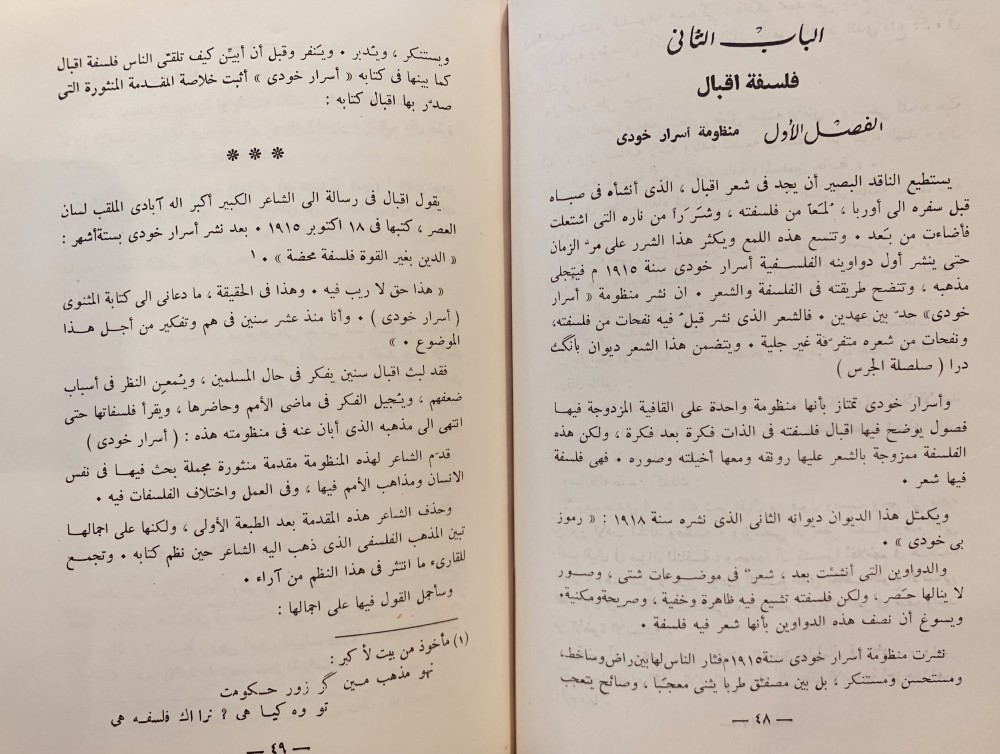 الباب الثانى
فلسفة اقبال
الفصل الأول منظومة أسرار خودى
يستطيع الناقد البصير أن يجد فى شعر اقبال ، الذى أنشأه فى صباه
قبل سفره الى أوربا ، لُمَعاً من فلسفته ، وشَرَراً من ناره التى اشتعلت
فأضاءت من بَعد ٠ وتتسع هذه اللمع ويكثر هذا الشرر على مرّ الزمان
حتى ينشر أول دواوينه الفلسفية أسرار خودى سنة ١٩١٥ م فيتجلى
مذهبه ، وتتضح طريقته فى الفلسفة والشعر ٠ ان نشر منظومة « أسرار
خودى» حدّ بين عهدين ٠ فالشعر الذى نشر قبلُ فيه نفحات من فلسفته،
ونفحات من شعره متفرّقة غير جلية ٠ ويتضمن هذا الشعر ديوان بانگث
درا ( صلصلة الجرس )
وأسرار خودى تمتاز بأنها منظومة واحدة على القافية المزدوجة فيها
فصول يوضح فيها اقبال فلسفته فى الذات فكرة بعد فكرة ، ولكن هذه
الفلسفة ممزوجة بالشعر عليها رونقه ومعها أخيلته وصوره ٠ فهى فلسفة
فيها شعر ٠
ويكمّل هذا الديوان ديوانه الثانى الذى نشره سنة ١٩١٨ : « رموز
بى خودى » ٠
والدواوين التى أنشئت بعد ، شعرٌ فى موضوعات شتى ، وصور
لا ينالها حَصر ، ولكن فلسفته تشيع فيه ظاهرة وخفية ، وصريحة ومكنية٠
ويسوغ أن نصف هذه الدواوين بأنها شعر فيه فلسفة ٠
نشرت منظومة أسرار خودى سنة ١٩١٥م فثار الناس لها بين راض وساخط،
ومستحسن ومستنكر ، بل بين مصفق طربا يثنى معجبًا ، وصائح يتعجب
— ٤٨ —
ويستنكر ، ويُدبر ٠ ويَنفر وقبل أن أبيّن كيف تلقى الناس فلسفة اقبال
كما بينها فى كتابه « أسرار خودى » أثبت خلاصة المقدمة المنثورة التى
صدّر بها اقبال كتابه :
* * *
يقول اقبال فى رسالة الى الشاعر الكبير أكبر اله آبادى الملقب لسان
العصر ، كتبها فى ١٨ اكتوبر ١٩١٥ ٠ بعد نشر أسرار خودى بستة أشهر :
« الدين بغير القوة فلسفة محضة » ٠ ١
« هذا حق لا ريب فيه ٠ وهذا فى الحقيقة ، ما دعانى الى كتابة المثنوى
( أسرار خودى ) ٠ وأنا منذ عشر سنين فى هم وتفكير من أجل هذا
الموضوع ٠ »
فقد لبث اقبال سنين يفكر فى حال المسلمين ، ويُمعن النظر فى أسباب
ضعفهم ، ويُجيل الفكر فى ماضى الأمم وحاضرها ، ويقرأ فلسفاتها حتى
انتهى الى مذهبه الذى أبان عنه فى منظومته هذه : ( أسرار خودى )
قدّم الشاعر لهذه المنظومة مقدمة منثورة مجملة بحث فيها فى نفس
الانسان ومذاهب الأمم فيها ، وفى العمل واختلاف الفلسفات فيه ٠
وحذف الشاعر هذه المقدمة بعد الطبعة الأولى ، ولكنها على اجمالها
تبين المذهب الفلسفى الذى ذهب اليه الشاعر حين نظم كتابه ٠ وتجمع
للقارىء ما انتثر فى هذا النظم من آراء ٠
وسأجمل القول فيها على اجمالها :
(١) مأخوذ من بيت لأكبر :
نهو مذهب مين گر زور حكومت
تو وه كيا هى ? نرا اك فلسفه هى
— ٤٩ —